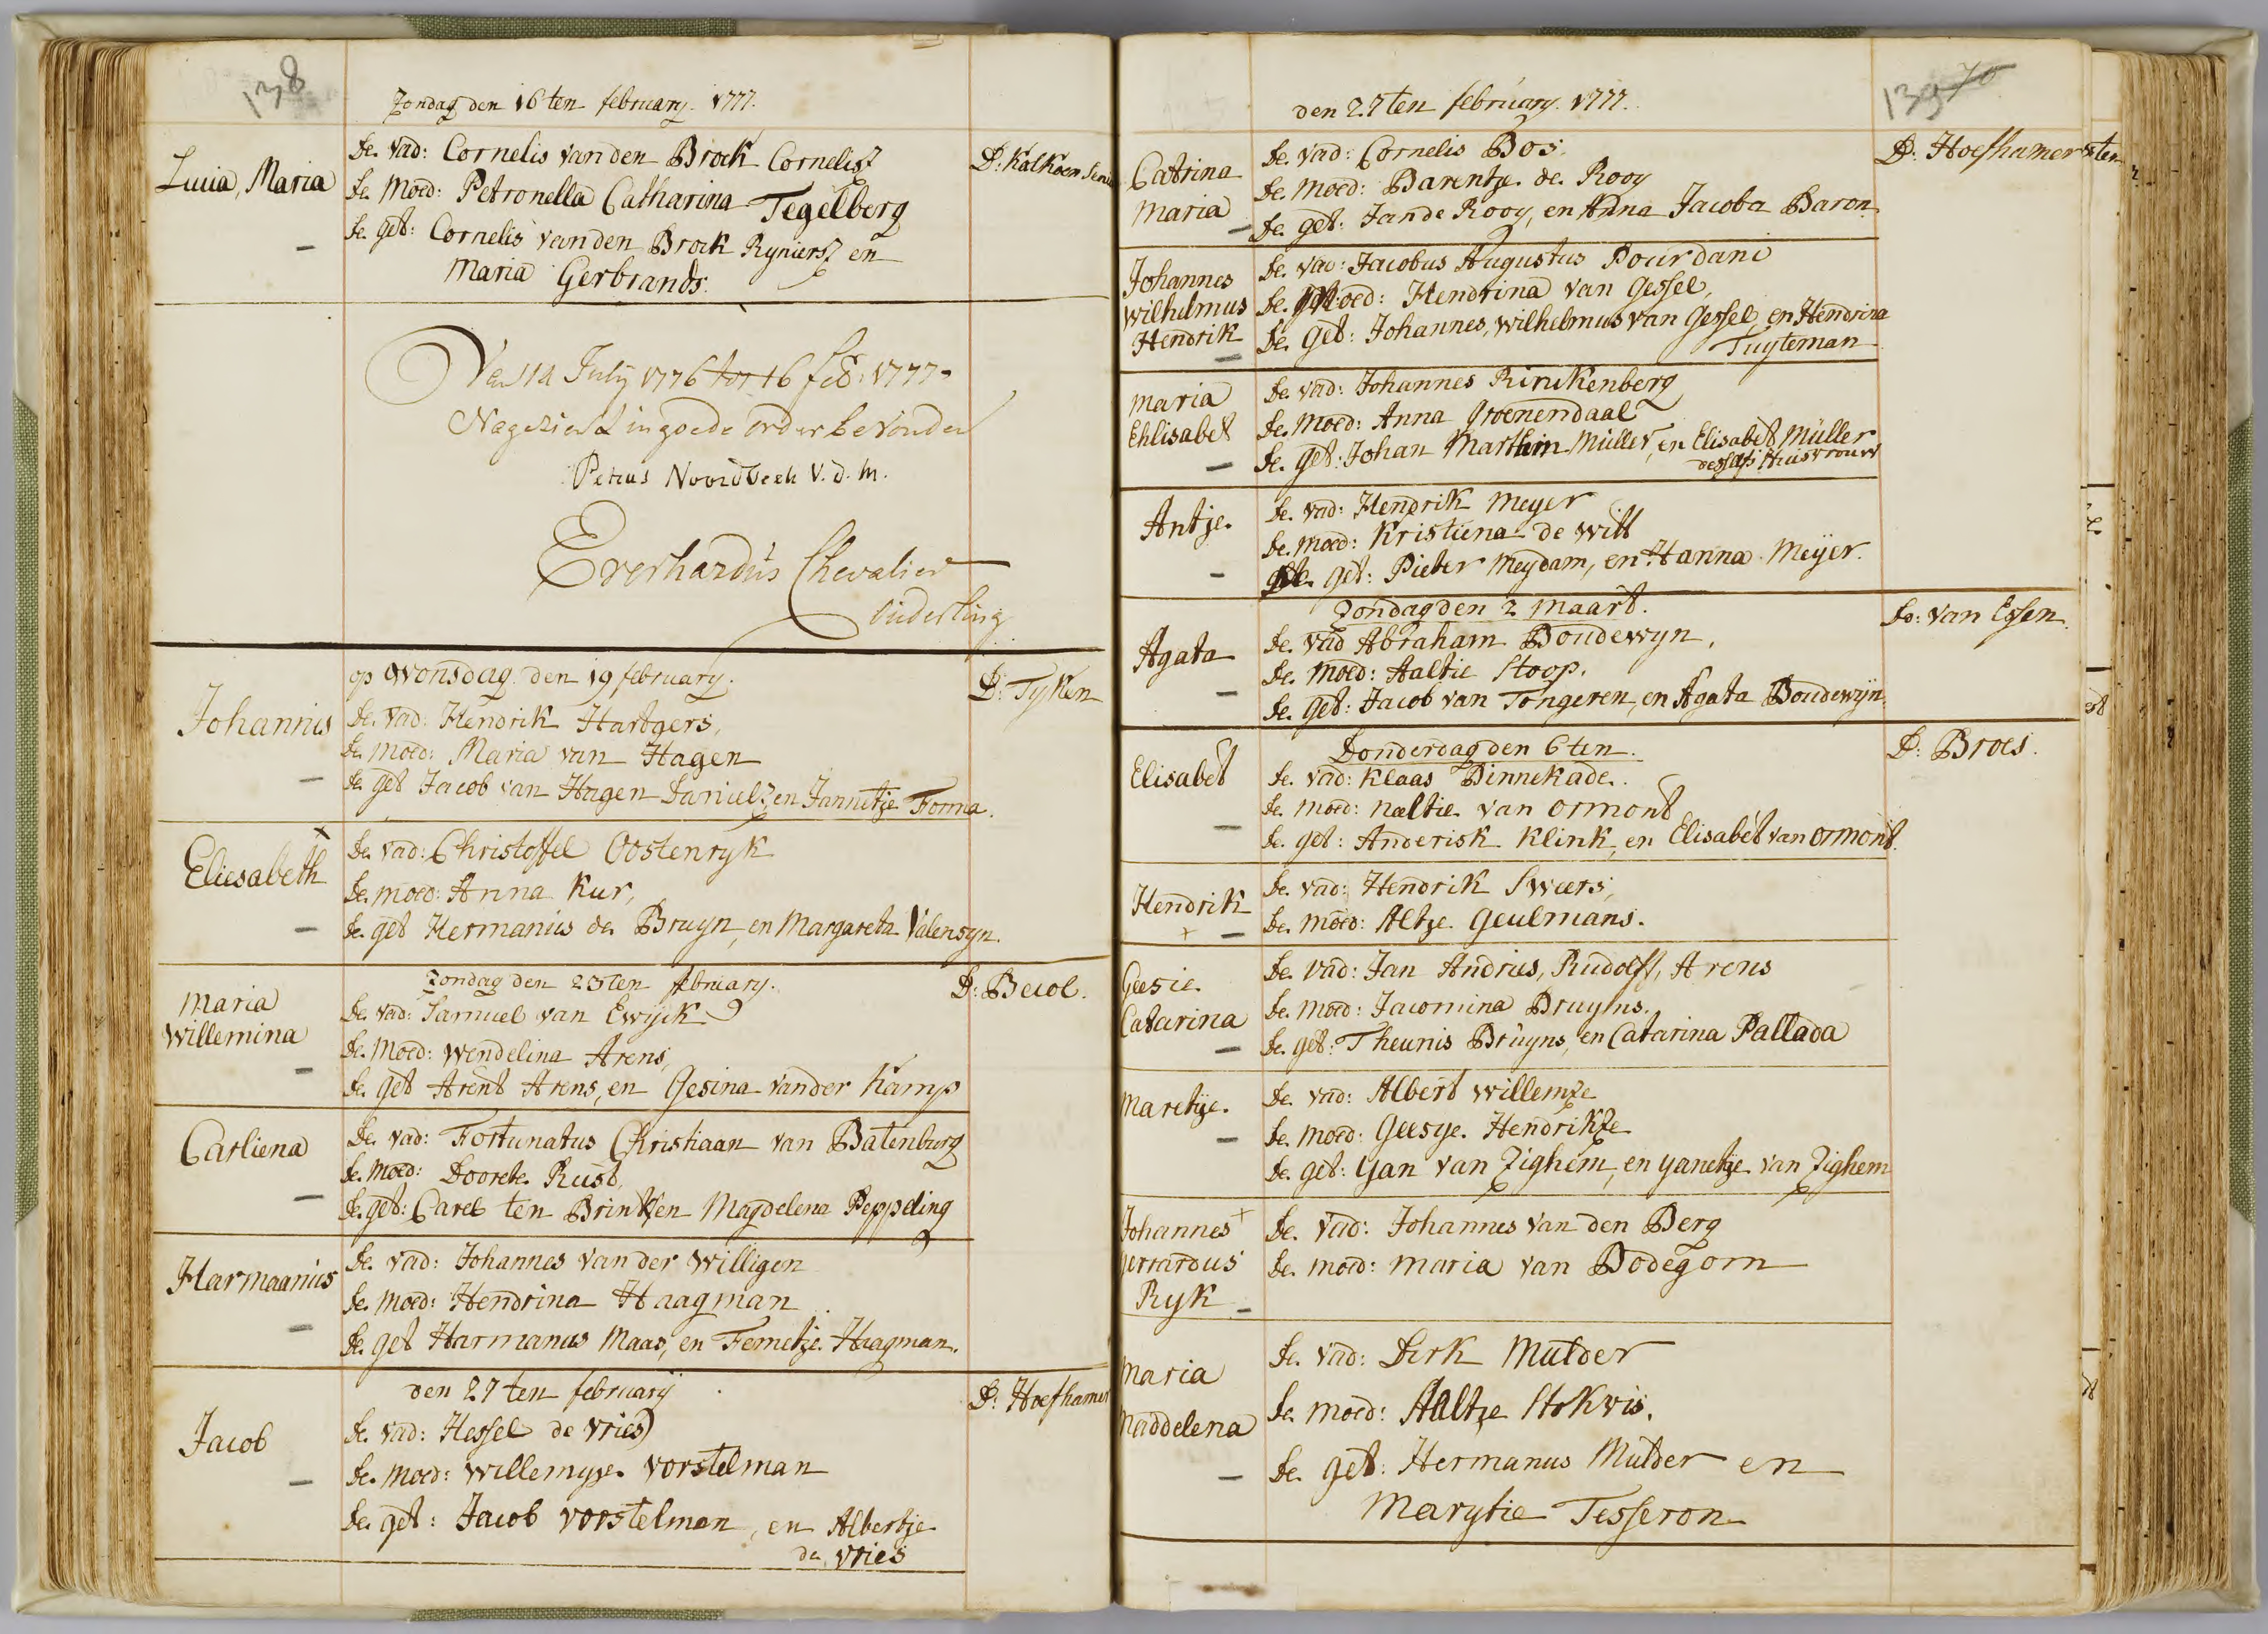 138
Zondag den 16 ten february. 1777.
Lucia, Maria
De. vad: Cornelis van den Broek Cornelisz
De. Moed: Petronella Catharina Tegelberg
De. get: Cornelis van den Broek Ryniersz en
Maria Gerbrands.
D: Kalkoen Senior
Van 14 July 1776 tot 16 feb: 1777
Nagezien & in goede order bevonden
Petrus Noordbeek V. d. M.
Everhardus Chevalier
Ouderling
op Wonsdag den 19 february.
D: Tyken
Johannis
De. vad: Hendrik Hartgers,
De. moed: Maria van Hagen
De. get Jacob van Hagen Danielsz, en Jannetje Forma.
Eliesabeth
De. vad: Christoffel Oostenryk
De. moed: Anna Kur,
De. get Hermanius de Bruyn, en Margareta Valensyn.
Zondag den 23 ten february.
D: Becol.
Maria
Willemina
De. vad: Samuel van Ewijck
De. Moed: Wendelina Arens,
De. get Arent Arens, en Gesina vander Kamp
Carliena
De. vad: Fortunatus Christiaan van Batenburg
De. Moed: Doorete Rust,
De. get: Carel ten Brink, en Magdelena Peppeling
Harmaanius
De. vad: Johannes van der Willigen
De. Moed: Hendrina Haagman
De. get Harmanus Maas, en Femetje Haagman.
den 27 ten february
D: Hoefhamer
Jacob
De. vad: Hessel de Vries
De. Moed: Willemyje Vorstelman
De. get: Jacob Vorstelman, en Albertje
de Vries
139
den 27 ten february. 1777.
D: Hoefhamer
Catrina
Maria
De. vad: Cornelis Bos.
De. moed: Barentje de Rooy
De. get: Jan de Rooy, en Anna Jacoba Baron
Johannes
Wilhelmus
Hendrik
De. vad: Jacobus Augustus Dourdani
De. Moed: Hendrina van Gessel,
De. get: Johannes, Wilhelmus van Gessel, en Hendrina
Tuyteman
Maria
Ehlisabet
De. vad: Johannes Rinckenberg
De. Moed: Anna Groenendaal
De. get: Johan Marthin Müller, en Elisabet Müller
desselfs Huisvrouw
Antje
De. vad: Hendrik Meyer
De. moed: Kristiena de Witt
De. get: Pieter Meydam, en Hanna Meijer.
Zondag den 2 Maart.
Do: van Essen
Agata
De. vad Abraham Boudewyn,
De. Moed: Aaltie Stoop.
De. get: Jacob van Tongeren, en Agata Boudewyn
Donderdag den 6 ten.
D: Broes.
Elisabet
De. vad: Klaas Binnekade.
De. moed: Naeltie van Ormont
De. get: Anderisk Klink, en Elisabet van Ormont
Hendrik
De. vad: Hendrik Sweers,
De. moed: Altje Geulmans.
Geesie
Catarina
De. vad: Jan Andries, Rudolff, Arens
De. moed: Jacomina Bruyns.
De. get: Theunis Bruyns, en Catarina Pallada
Maretije.
De. vad: Albert Willemze
De. moed: Geesye Hendrikze
De. get: Yan van Zighem, en Yanetje van Zighem
Johannes
Gerrardus
Ryk
De. vad: Johannes van den Berg
De. moed: Maria van Bodegom
Maria
Maddelena
De. vad: Dirk Mulder
De. moed: Aaltje Stokvis.
De. get: Hermanus Mulder en
Marytie Tesseron